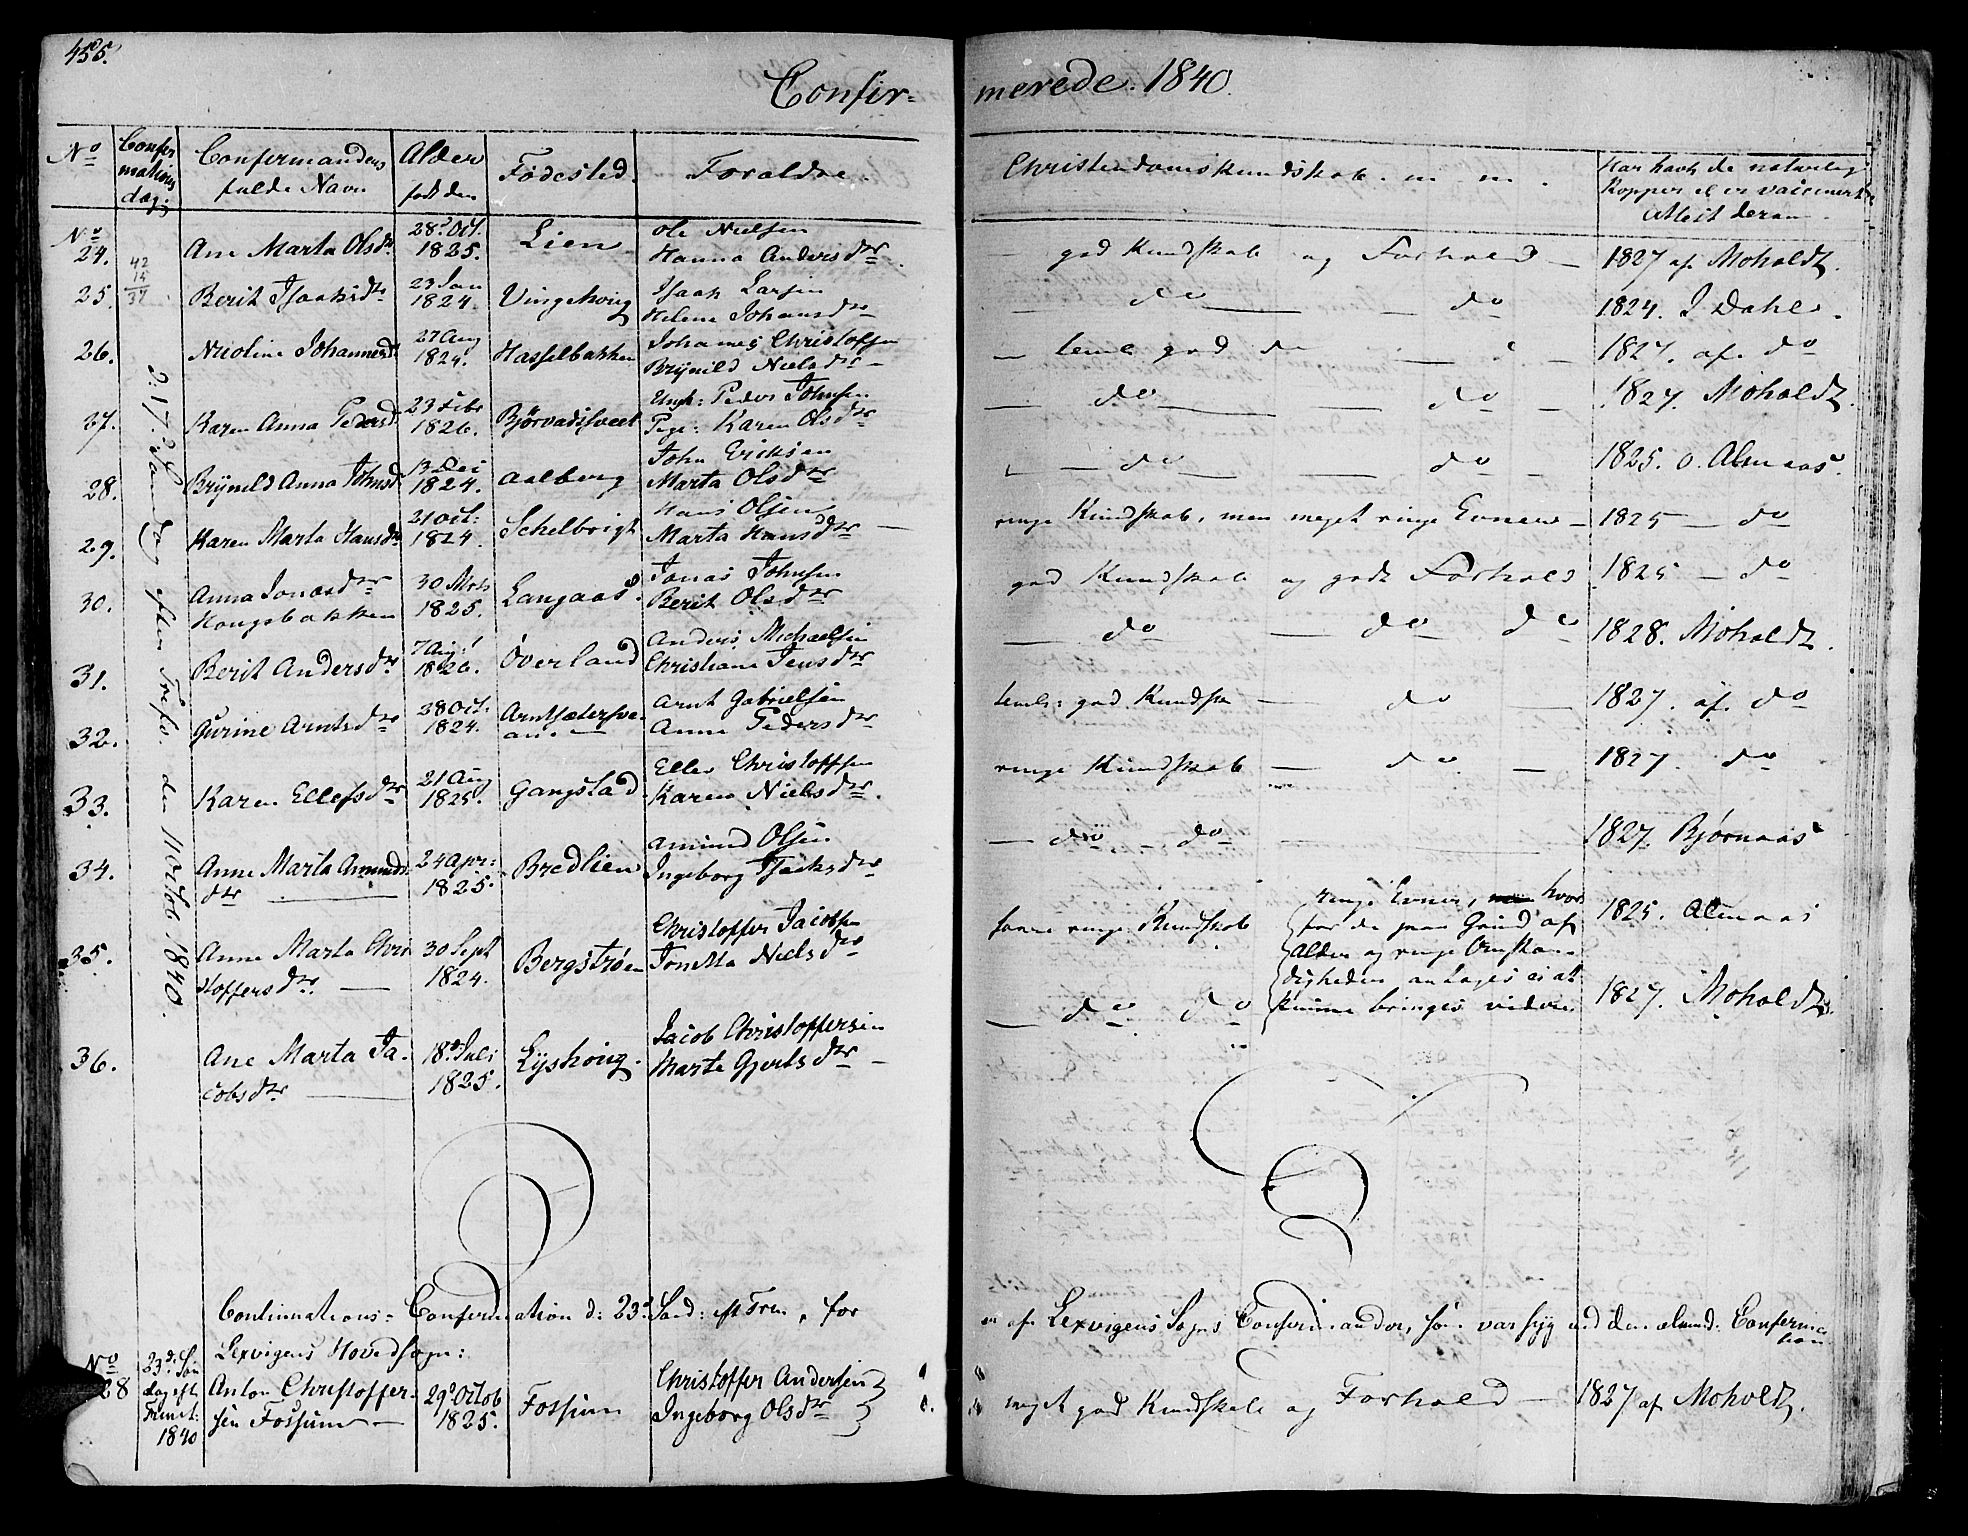 455.
Confir= merede. 1840.
No Confirmations dag. Confirmandens fulde Navn Alder født den Fødested. Forældre. Christendomskundskab. m. m. Har havt de naturlig Kopper el er vaccineret Attest derom.
2: 17de Søndag efter Trefo. den 11 Octob 1840.
42
15
37
No 24. Ane Marta Olsdr. 28d Oct. 1825. Lien Ole Nielsen Hanna Andersdtr. god Kundskab og Forhold — 1827 af Moholdt.
25. Berit Isaksdtr 23 Jan 1824. Vingehoug Isaak Larsen Helene Johansdtr — do — do 1824. J Dahl.
26. Nicoline Johannesdr 27 Aug 1824. Hasselbakken Johannes Christofsen Brynild Nielsdtr — temel god do — 1827. af. do
27. Karen Anna Pedersd. 23 Febr 1826. Bjørvadsveet Ungk: Peder Johnsen Pige: Karen Olsdtr — do — do — 1827. Moholdt.
28. Brynild Anna Johnsd. 13 Dec 1824. Aalberg John Ericksen Marta Olsdtr — do — do — 1825. O. Almaas.
29. Karen Marta Hansdr 21 Oct: 1824. Schelbrigt Hans Olsen Marta Hansdtr — ringe Kundskab, men meget ringe Evner — 1825 — do
30. Anna Jonasdtr Hougsbakken 30 Mrts 1825. Langaas. Jonas Johnsen Berit Olsdtr god Kundskab og godt Forhold 1825 — do
31. Berit Andersdr 7 Aug: 1826. Overland Anders Michaelsen Christiane Jensdtr — do — do do 1828. Moholdt.
32. Gurine Arntsdtr 28 Oct. 1824. Arnt Gabrielsen Anne Pedersdtr temel: god Kundsk — do — 1827. af. do
33. Karen Ellefsdtr 21 Aug 1825. Gangstad. Ellev Christoffsen Karen Nielsdtr. ringe Kundskab — do — 1827. do
34. Anne Marta Amundsdtr — 24 Apr: 1825. Bredlien Amund Olsen Ingeborg Isaksdtr — do — do 1827. Bjørnaas
35. Anne Marta Christoffersdtr. — 30 Sept 1824. Bergstrøen Christoffer Jacobsen Jonetta Nielsdtr ringe Kundskab 1825. Almaas
ringe Evner, hvor
for de paa Grund af
Alder og ringe Omstæn
digheder antages ei at
kunne bringes videre
36. Ane Marta Jacobsdtr — 18d Juli 1825. Lyshoug. Jacob Christoffersen Marte Gjertsdtr — do do 1827. Moholdt.
Continuations= Confirmation d: 23d Sønd: eft Tren, for en af Lexvigens Sogns Confirmander, som var syg ved den almind: Confirmation
Lexvigens Hovedsogn:
No 28 23d Søndag eft Trinit: 1840 Anton Christoffersen Fossum — 29d Octob 1825. Fossum Christoffer Andersen Ingeborg Olsdtr meget god Kundskab og Forhold — 1827 af Moholdt.